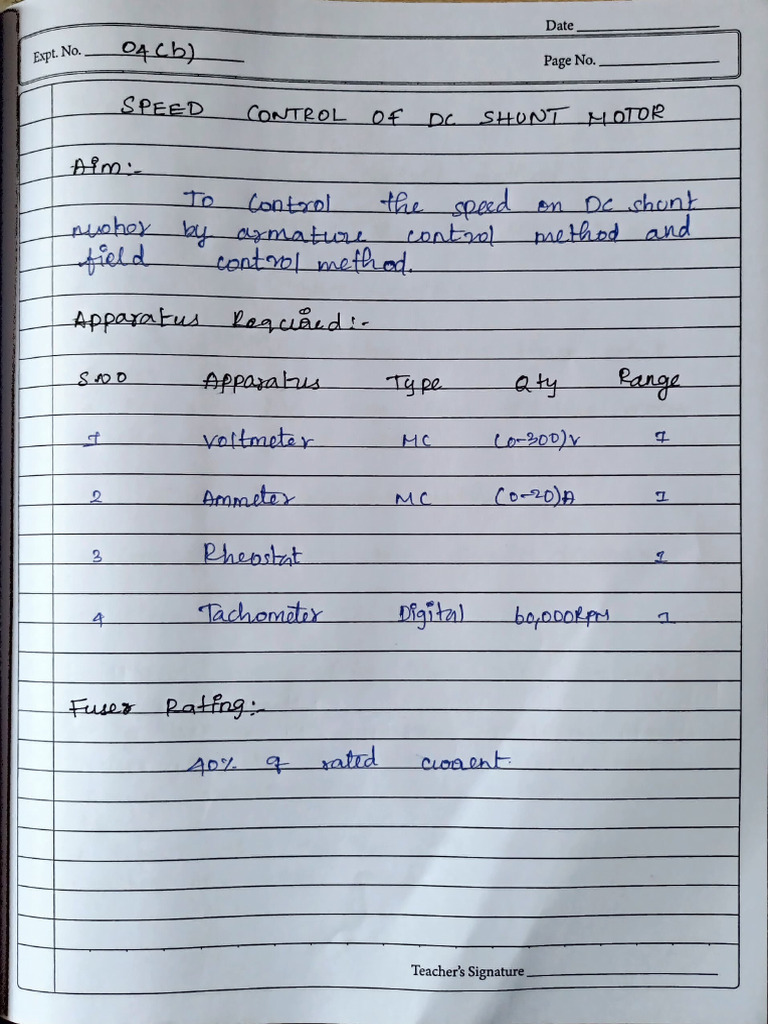 Date
Expt. No. 04(b)
Page No.
SPEED CONTROL OF DC SHUNT MOTOR
Aim:-
To control the speed on DC shunt
by armature control method and
field control method.
Apparatus Required:-
S.NO Apparatus Type Qty Range
1 Voltmeter MC (0-300)V 1
2 Ammeter MC (0-20)A 1
3 Rheostat 1
4 Tachometer Digital 60,000RPM 1
Fuser Rating:-
40% of rated current.
Teacher's Signature